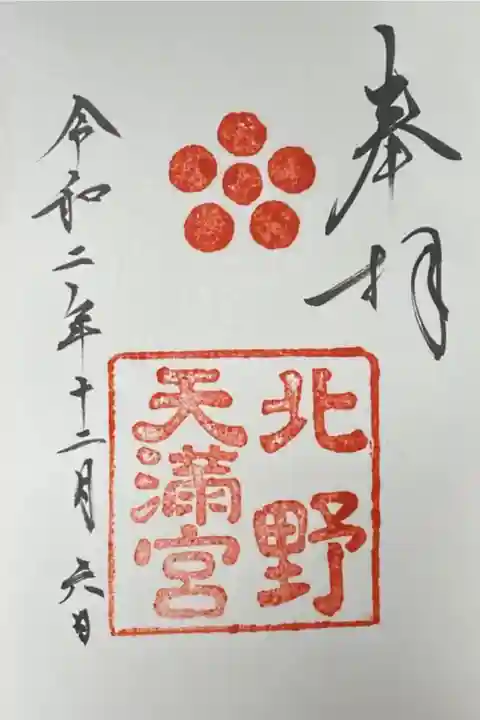 奉拝
北野
天満宮
令和二年十二月六日